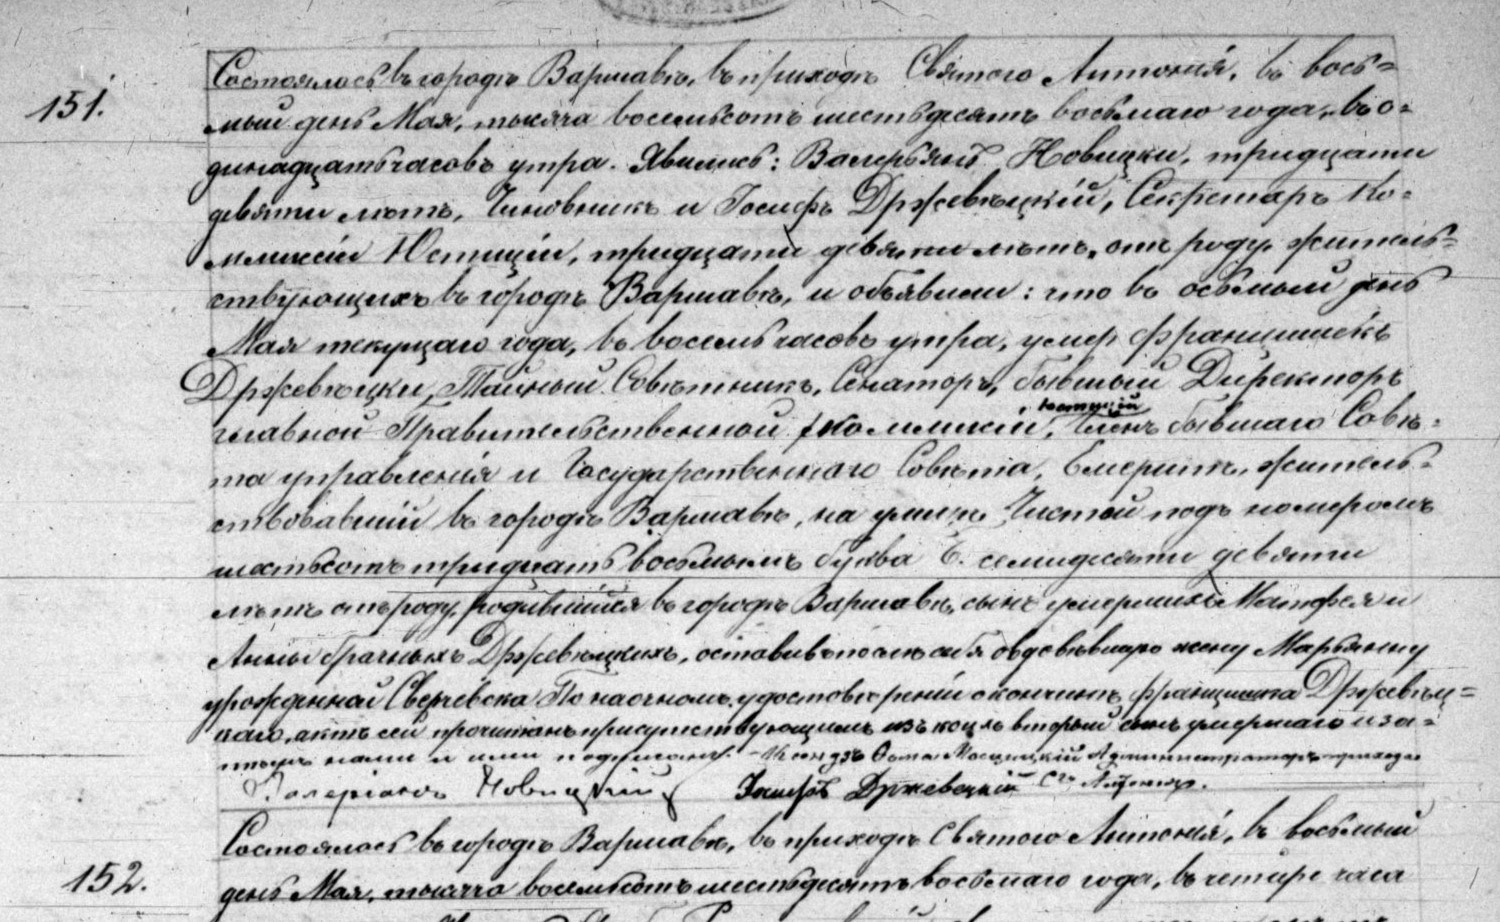 151.
Состоялось въ городѣ Варшавѣ, въ приходѣ Святого Антонія, въ вось=
мый день Мая, тысяча восемьсотъ шестьдесятъ восьмаго года, въ о=
динадцать часовъ утра. Явились: Валерьянъ Новицки, тридцати
девяти лѣтъ, Чиновникъ и Іосифъ Држевѣцкій, Секретаръ Ко=
ммисіи Юстиціи, тридцати девяти лѣтъ, отъ роду, житель=
ствующихъ въ городѣ Варшавѣ, и объявили: что въ осьмый день
Мая текущаго года, въ восемь часовъ утра, умер Францишекъ
Држевѣцки, Тайный Совѣтникъ, Сенаторъ, бывшый Директоръ
главной Правительственной Коммисіи, Юстиціи Членъ бывшаго Совѣ=
та управленія и Государственнаго Совѣта, Емеритъ, житель=
ствовавшій въ городѣ Варшавѣ, на улицѣ Чистой подъ номеромъ
шестьсотъ тридцать восьмымъ буква Е. семидесяти девяти
лѣтъ отъ роду, родившійся въ городѣ Варшавѣ, сынъ умершихъ Матфея и
Анны брачныхъ Држевѣцкихъ, оставивъ послѣ себя овдовѣвшую жену Марьянну
урожденной Сверчевска По наочномъ удостовѣреніи о кончинѣ Францишка Држевѣц=
каго, актъ сей прочитанъ присутствующимъ изъ коихъ вторый сынъ умершаго и за=
тѣмъ нами и ими подписанъ. Ксендзъ Ѳома Мосцицкій Администраторъ прихода
Валеріанъ Новицкій Іосифъ Држевецкій Св. Антонія.
Состоялось въ городѣ Варшавѣ, въ приходѣ Святого Антонія, въ восьмый
152.
день Мая, тысяча восемьсотъ шестьдесятъ восьмаго года, въ четыре часа